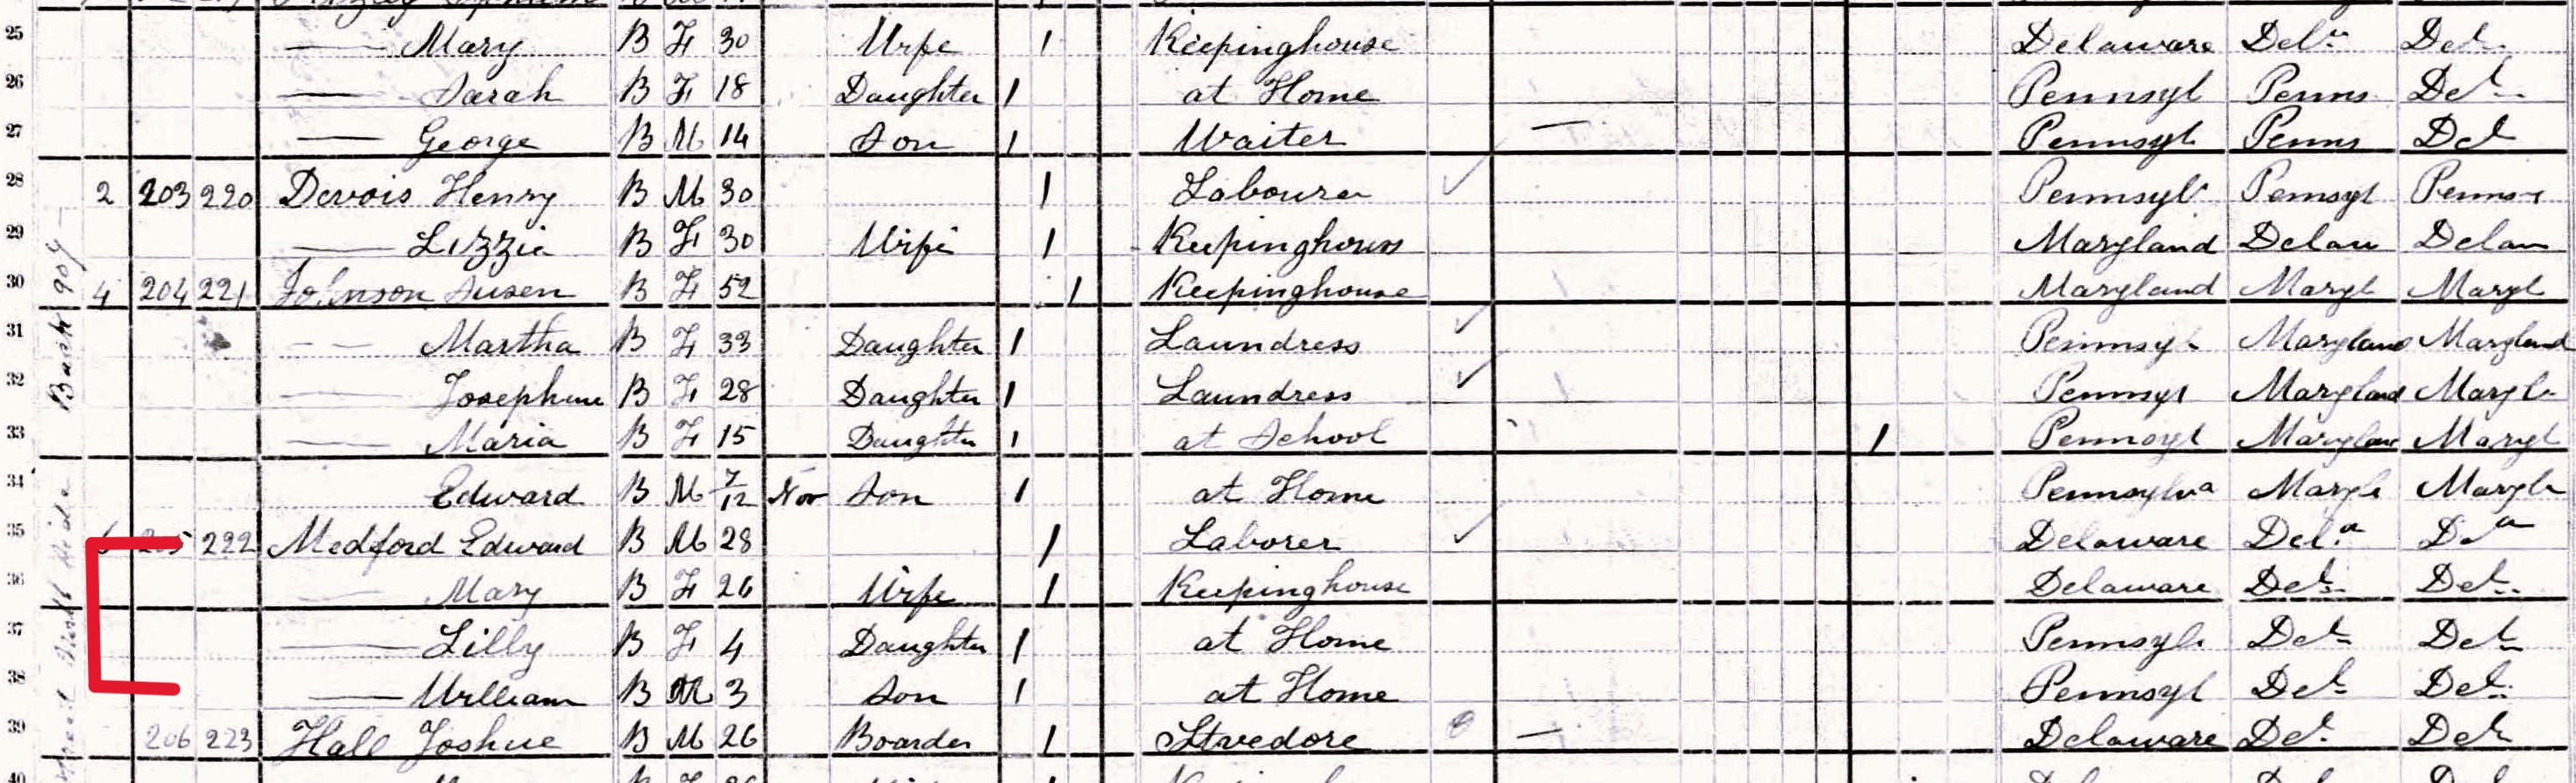 25 Mary B F 30 Wife 1 Keepinghouse Delaware Del. Del.
26 Sarah B F 18 Daughter 1 at Home Pennsyl Penns Del.
27 George B M 14 Son 1 Waiter Pennsyl Penns Del
28 2 203 220 Devois Henry B M 30 1 Labourer Pennsyl Pensyl Penns
29 Lizzie B F 30 Wife 1 Keepinghouse Maryland Delaw Delaw
30 4 204 221 Johnson Susen B F 52 1 Keepinghouse Maryland Maryl Maryl
31 Martha B F 33 Daughter 1 Laundress Pennsyl Maryland Maryland
32 Josephine B F 28 Daughter 1 Laundress Pennsyl Maryland Maryl
33 Maria B F 15 Daughter 1 at School 1 Pennsyl Maryland Maryl
34 Edward B M 7/12 Nov Son 1 at Home Pennsylva Maryl Maryl
35 205 222 Medford Edward B M 28 1 Laborer Delaware Del.a D a
36 Mary B F 26 Wife 1 Keepinghouse Delaware Del. Del.
37 Lilly B F 4 Daughter 1 at Home Pennsyl. Del Del
38 William B M 3 Son 1 at Home Pennsyl Del Del.
39 206 223 Hall Joshue B M 26 Boarder 1 Stvedore Delaware Del. Del
40